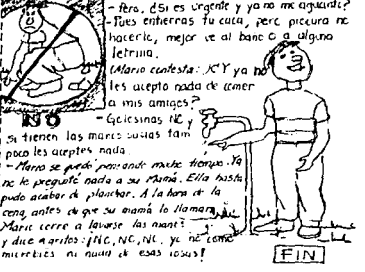 - Pero, ¿Si es urgente y ya no me aguanto?
- Pues entierras tu caca, pero procura no
hacerlo, mejor ve al baño o a alguna
letrina.
(Mario contesta: ¿Y ya no
les acepto nada de comer
a mis amigos?
NO
- Golosinas NO y
si tienen las manos sucias tam
poco les aceptes nada.
- Mario se quedó pensando mucho tiempo. Ya
no le preguntó nada a su Mamá. Ella hasta
pudo acabar de planchar. A la hora de la
cena, antes de que su mamá lo llamara
Mario corre a lavarse las manos
y dice a gritos: ¡NO, NO, NO, yo no como
microbios ni nada de esas cosas!
FIN